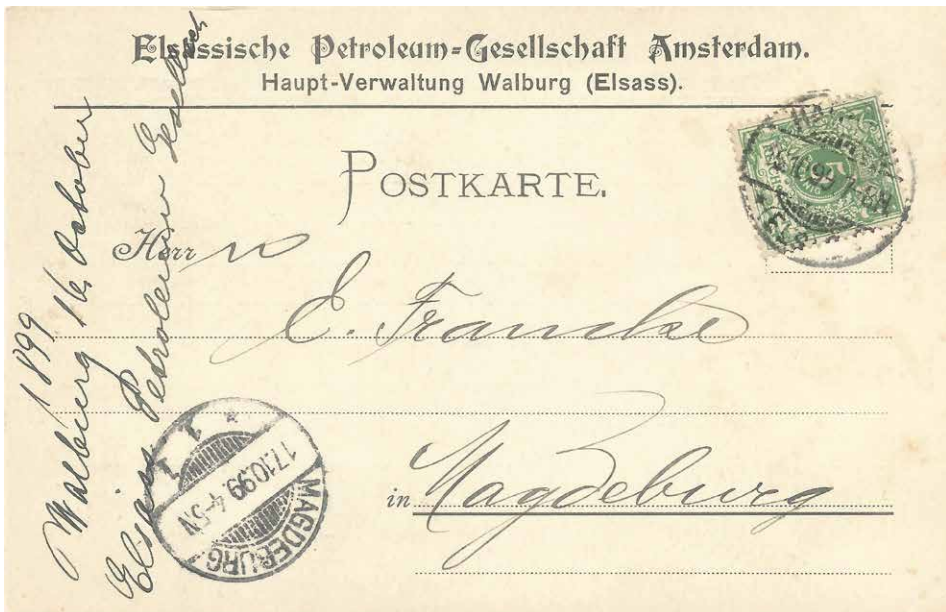 Elsässische Petroleum-Gesellschaft Amsterdam.
Haupt-Verwaltung Walburg (Elsass).
POSTKARTE.
Herrn
E. Francke
in Magdeburg
1899
Walburg 16 October
Elsäss. Petroleum Gesellsch
MAGDEBURG
17.10.99. 4-5N
1 1